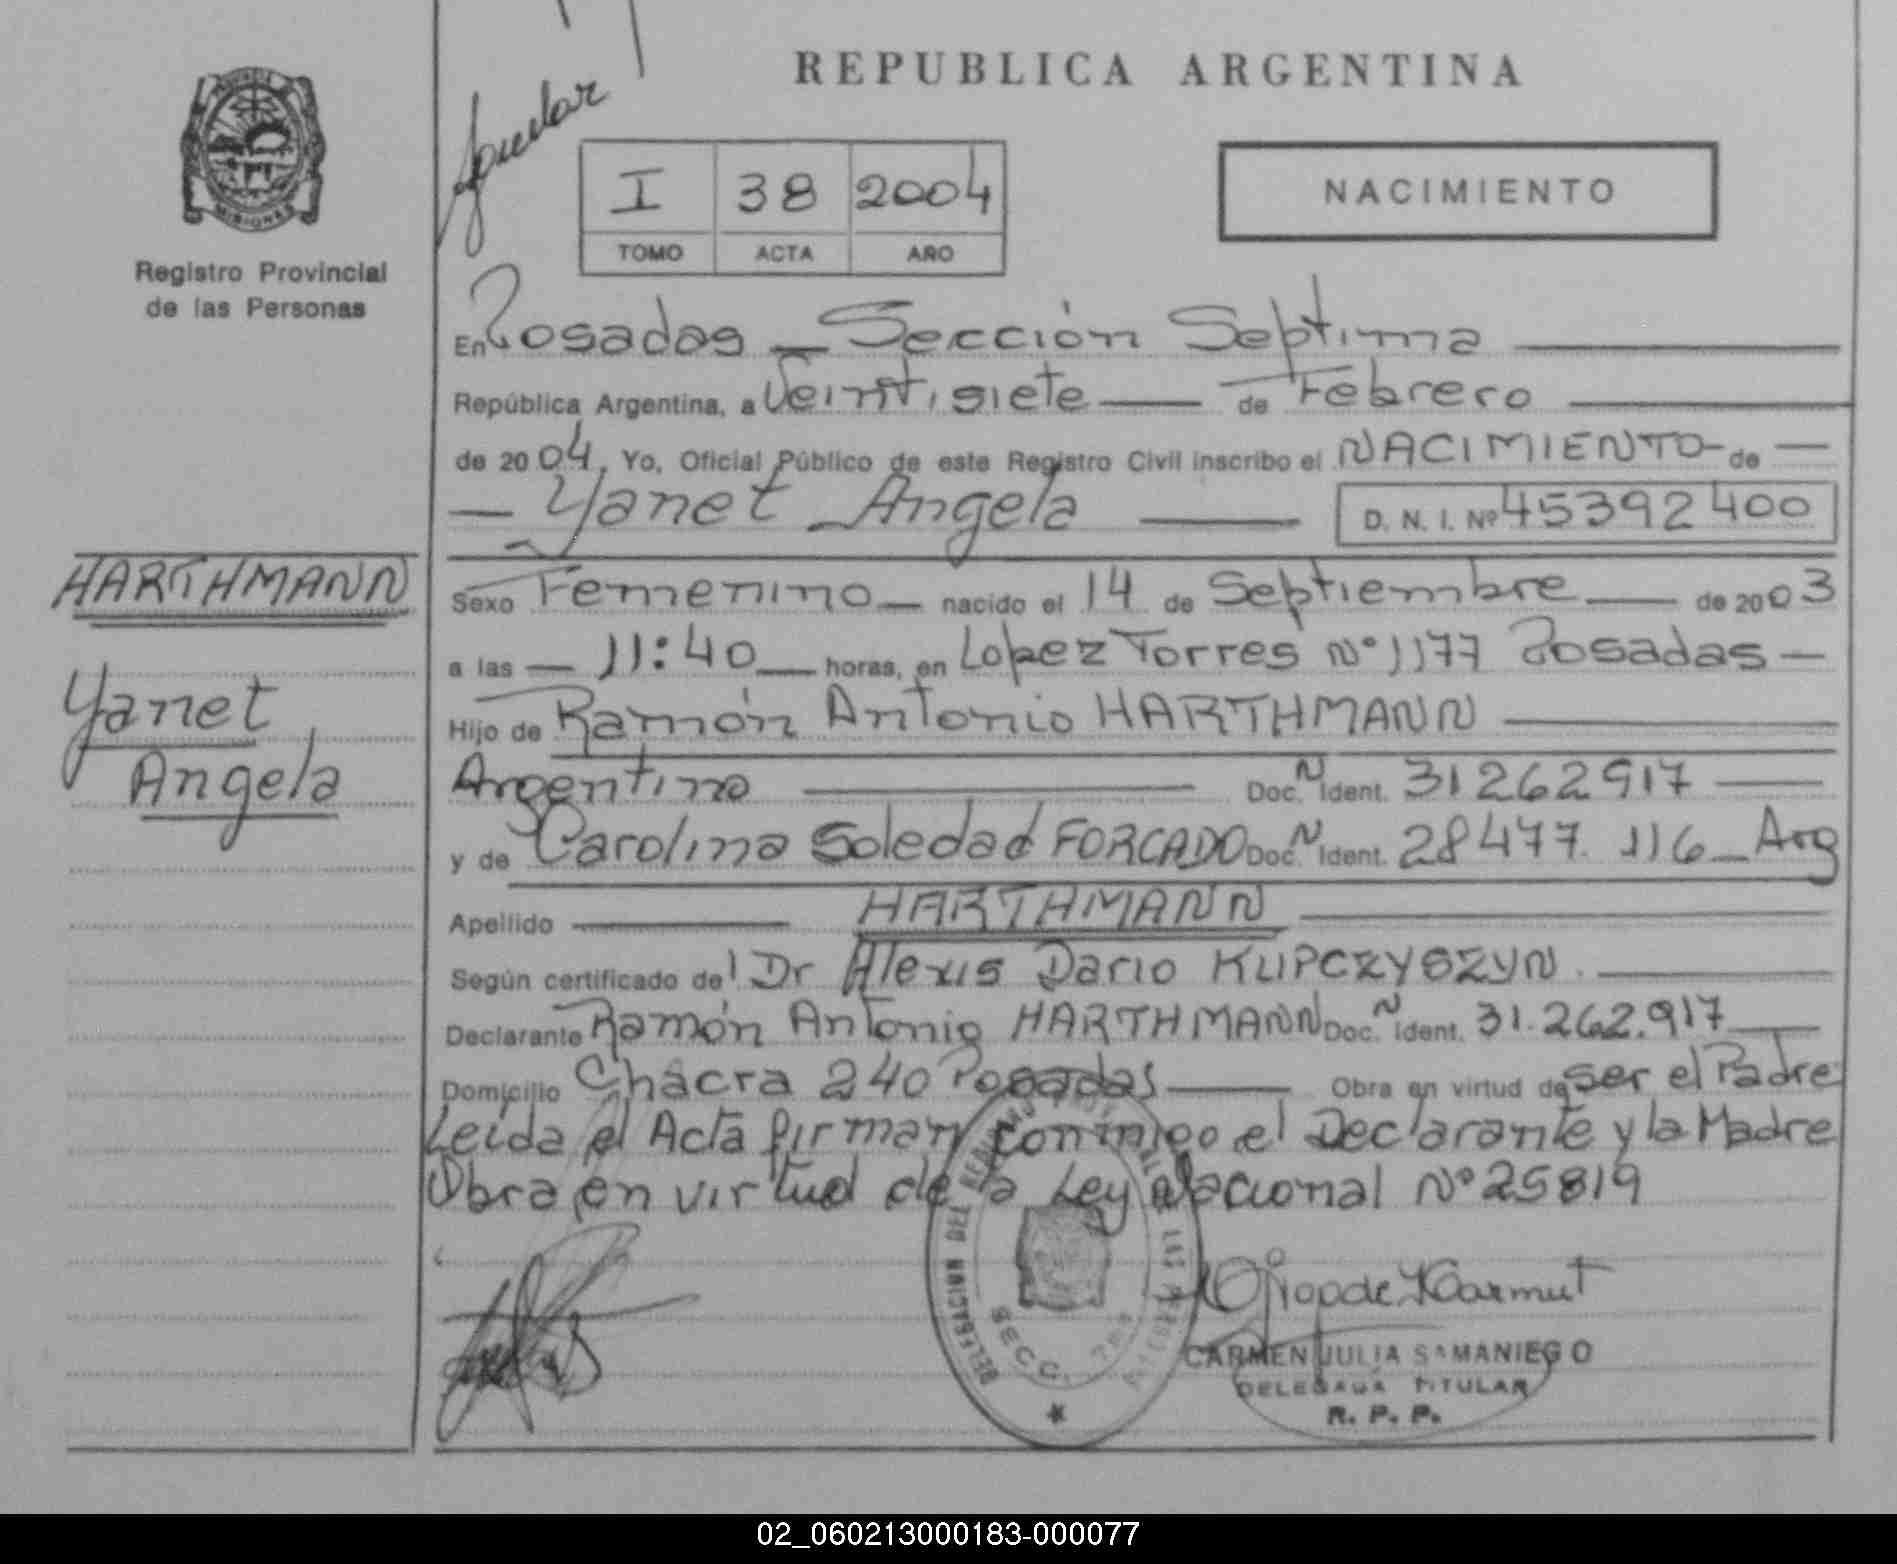 REPUBLICA ARGENTINA
MISIONES
Registro Provincial
de las Personas
I 38 2004
TOMO ACTA AÑO
NACIMIENTO
En Posadas - Sección Septima
República Argentina, a Veintisiete de Febrero
de 2004, Yo, Oficial Público de este Registro Civil inscribo el NACIMIENTO de
Yanet Angela D. N. I. Nº 45392400
HARTHMANN
Yanet
Angela
Sexo Femenino nacido el 14 de Septiembre de 2003
a las 11:40 horas, en Lopez Torres Nº 1177 Posadas
Hijo de Ramón Antonio HARTHMANN
Argentina Doc. N Ident. 31262917
y de Carolina Soledad FORCADO Doc. N Ident. 28477.116 Arg
Apellido HARTHMANN
Según certificado del Dr Alexis Dario KUPCZYSZYN
Declarante Ramón Antonio HARTHMANN Doc. N Ident. 31.262.917
Domicilio Chacra 240 Posadas Obra en virtud de ser el Padre
Leída el Acta firman conmigo el Declarante y la Madre
Obra en virtud de la Ley Nacional Nº 25819
DELEGACION DEL REGISTRO PROVINCIAL DE LAS PERSONAS
SECC. 7ma
CARMEN JULIA SAMANIEGO
DELEGADA TITULAR
R. P. P.
02_060213000183-000077